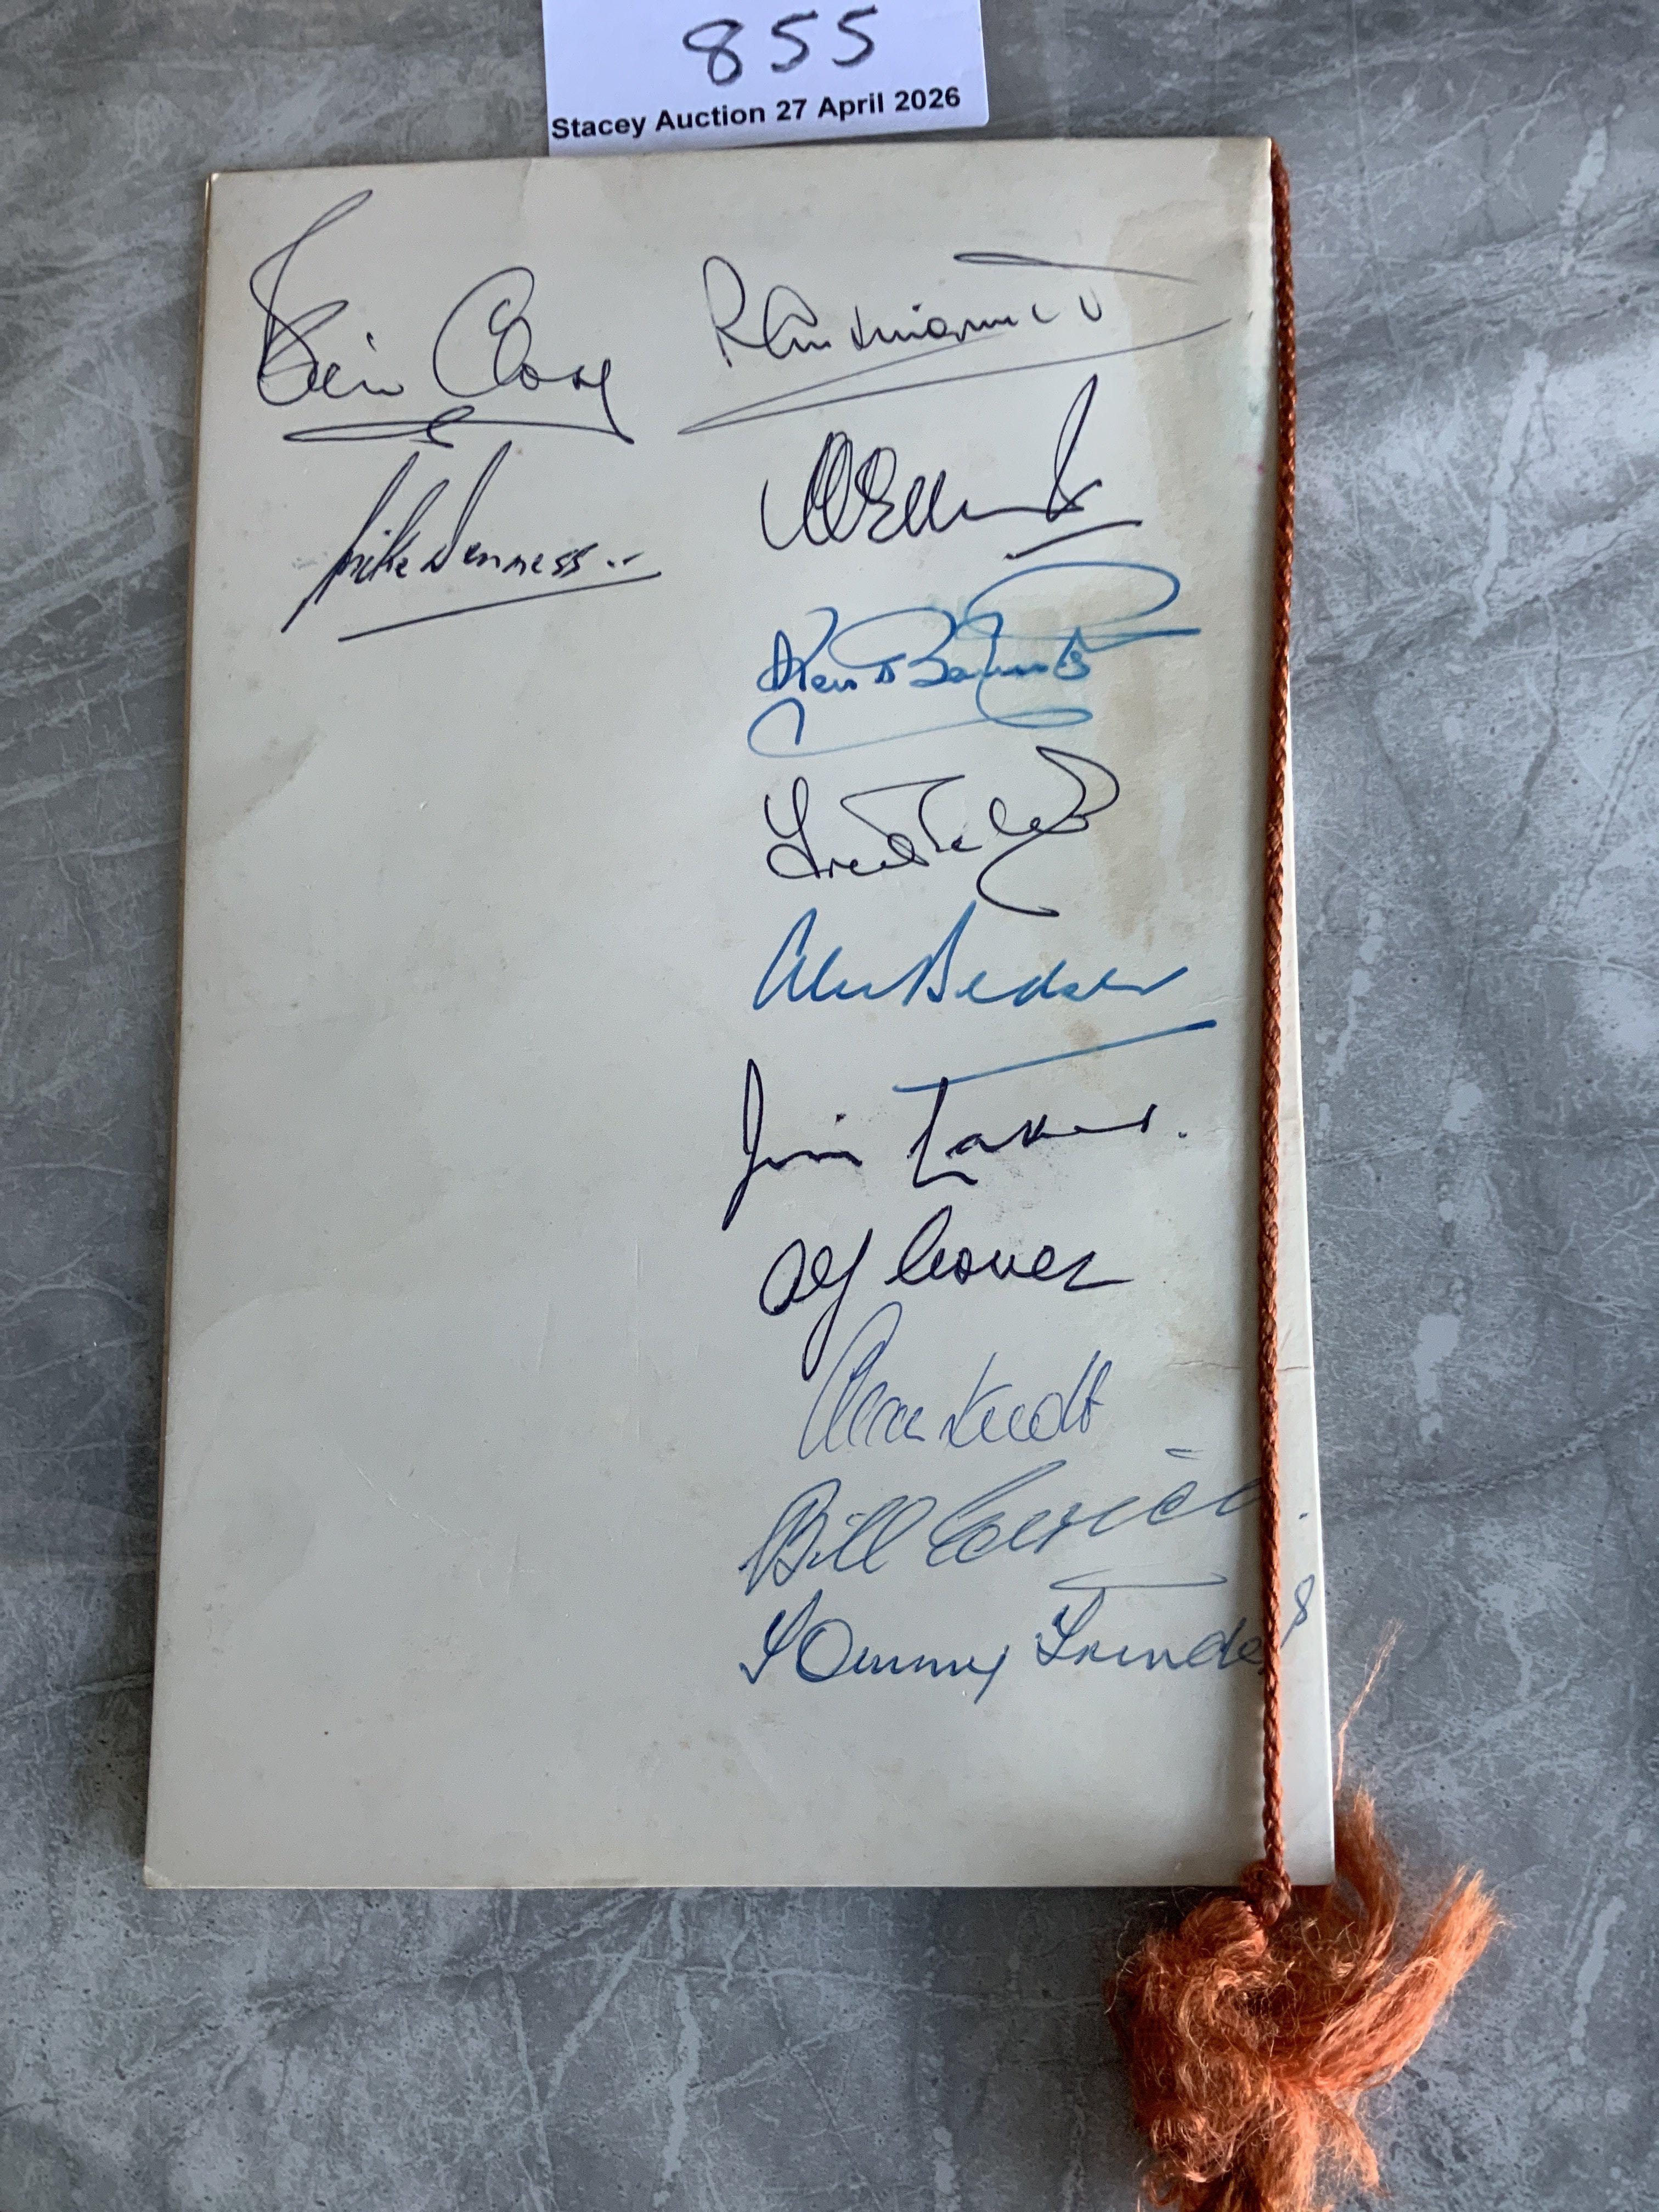 855
Stacey Auction 27 April 2026
Brian Close
R Illingworth
Mike Denness
Ken Barrington
Fred Titmus
Alec Bedser
Jim Laker.
Alf Gover
Alan Knott
Bill Edrich.
Tommy Trinder